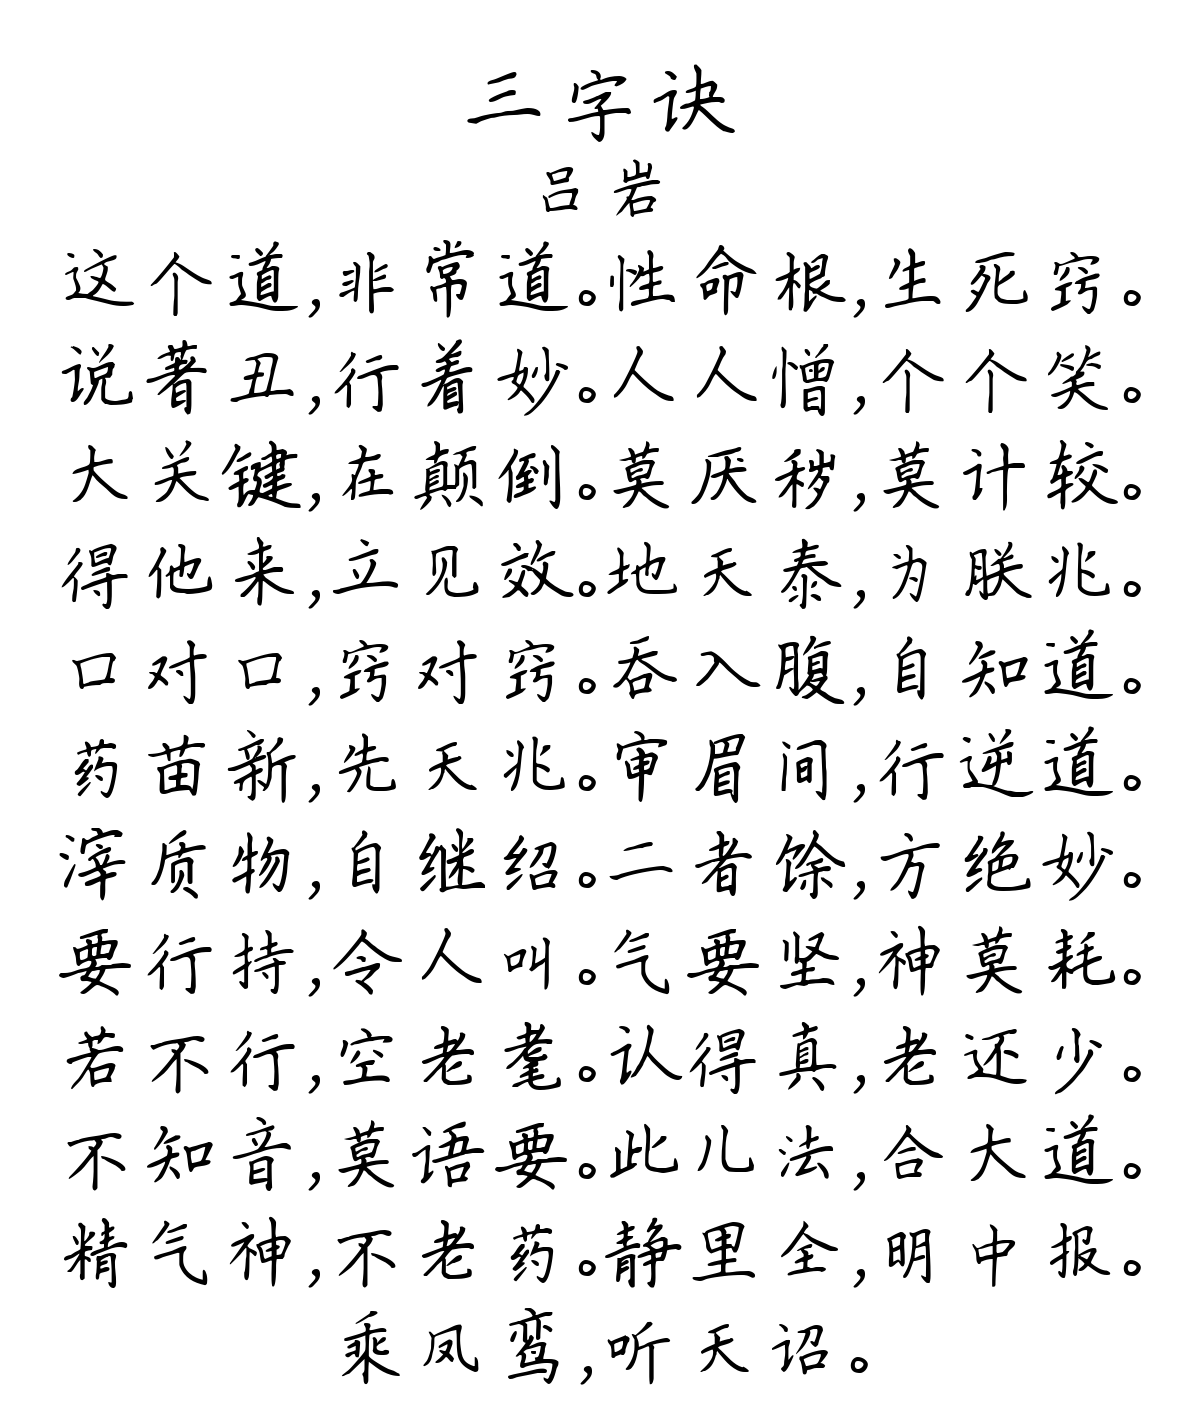 三字诀
吕岩
这个道,非常道。性命根,生死窍。
说著丑,行着妙。人人憎,个个笑。
大关键,在颠倒。莫厌秽,莫计较。
得他来,立见效。地天泰,为朕兆。
口对口,窍对窍。吞入腹,自知道。
药苗新,先天兆。审眉间,行逆道。
滓质物,自继绍。二者馀,方绝妙。
要行持,令人叫。气要坚,神莫耗。
若不行,空老耄。认得真,老还少。
不知音,莫语要。此儿法,合大道。
精气神,不老药。静里全,明中报。
乘凤鸾,听天诏。